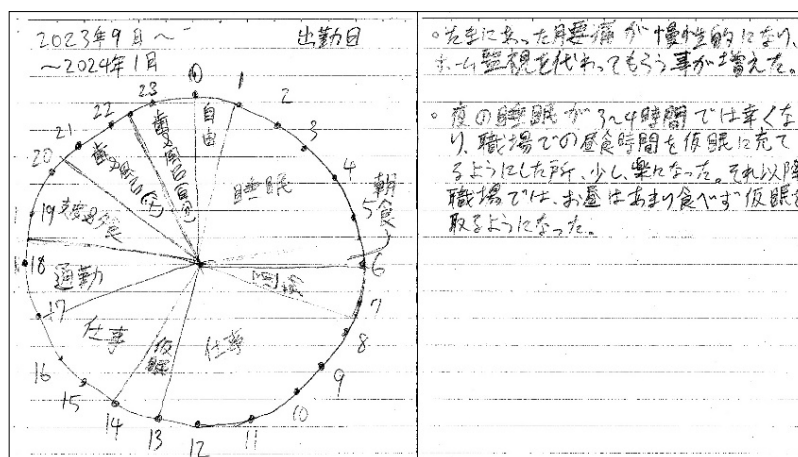 2023年9月〜
〜2024年1月
出勤日
0
1
2
3
4
5
6
7
8
9
10
11
12
13
14
15
16
17
18
19
20
21
22
23
自由
睡眠
朝食
仕事
仮眠
仕事
通勤
。たまにあった腰痛が慢性的になり、
ホーム監視を代わってもらう事が増えた。
。夜の睡眠が3〜4時間では辛くな
り、職場での昼食時間を仮眠に充て
るようにした所、少し、楽になった。それ以降
職場では、お昼はあまり食べず仮眠を
取るようになった。